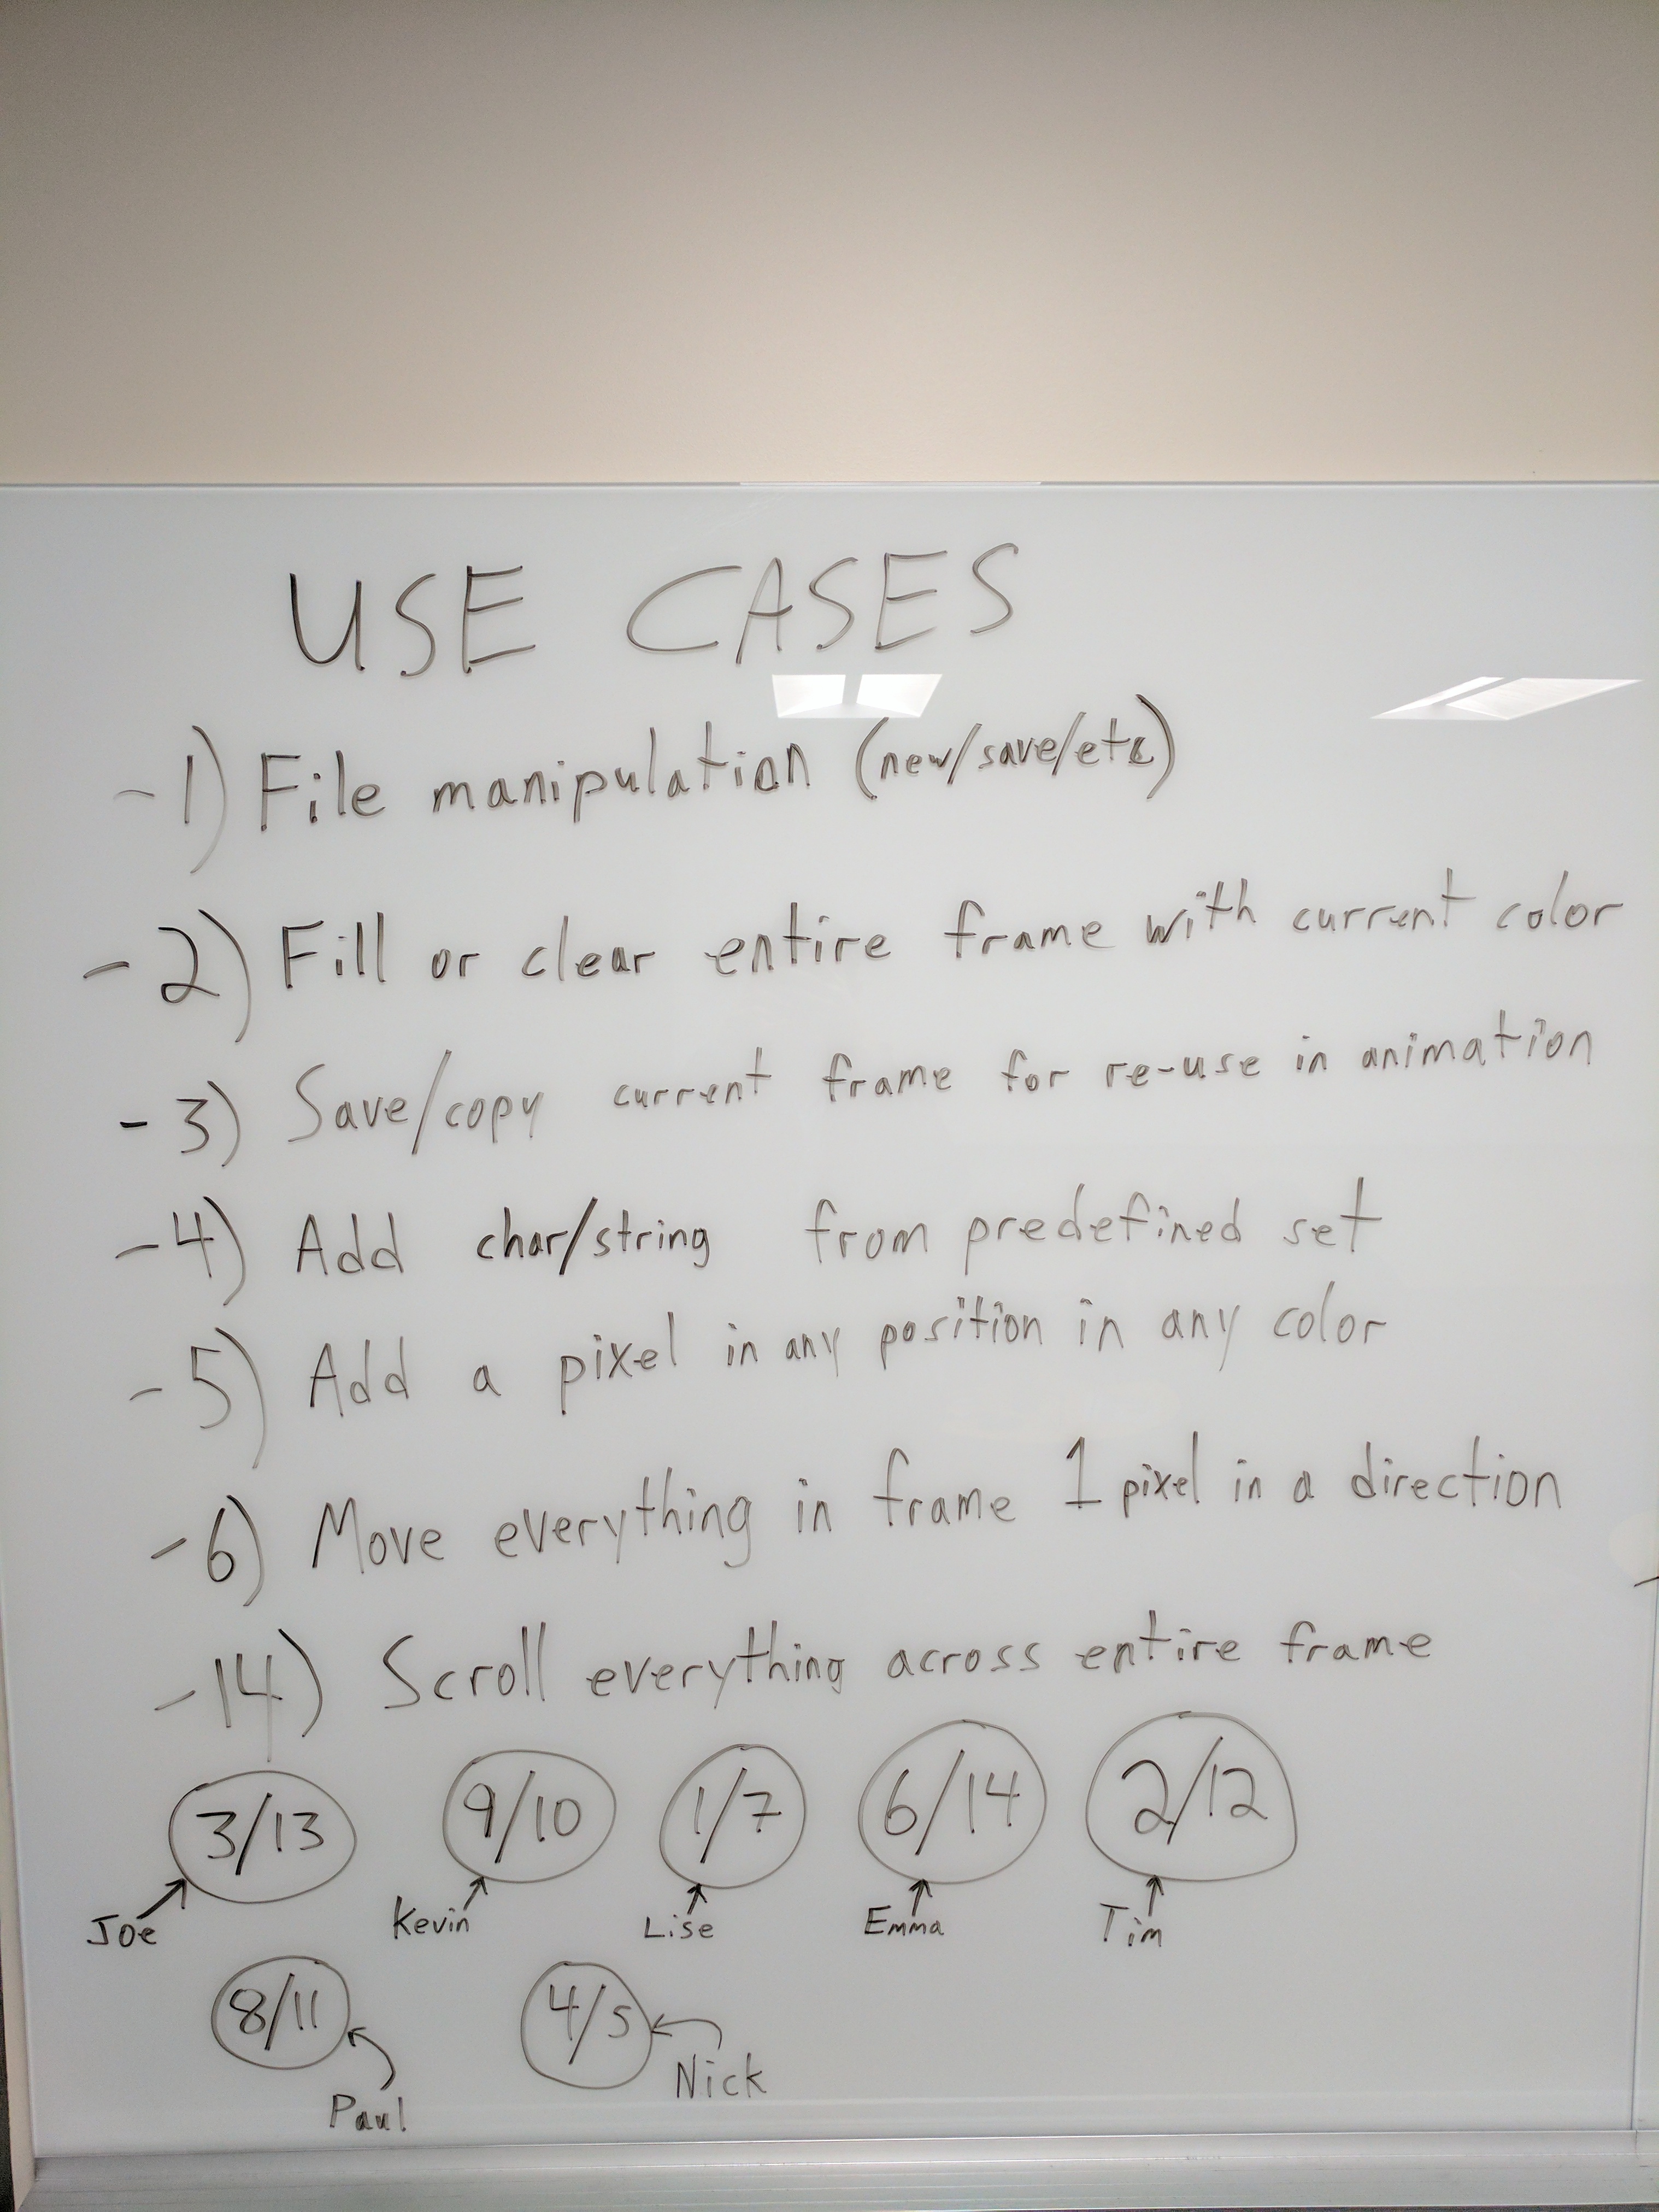 USE CASES
-1) File manipulation (new/save/etc)
-2) Fill or clear entire frame with current color
-3) Save/copy current frame for re-use in animation
-4) Add char/string from predefined set
-5) Add a pixel in any position in any color
-6) Move everything in frame 1 pixel in a direction
-14) Scroll everything across entire frame
3/13 9/10 1/7 6/14 2/12
Joe Kevin Lise Emma Tim
8/11 4/5
Paul Nick